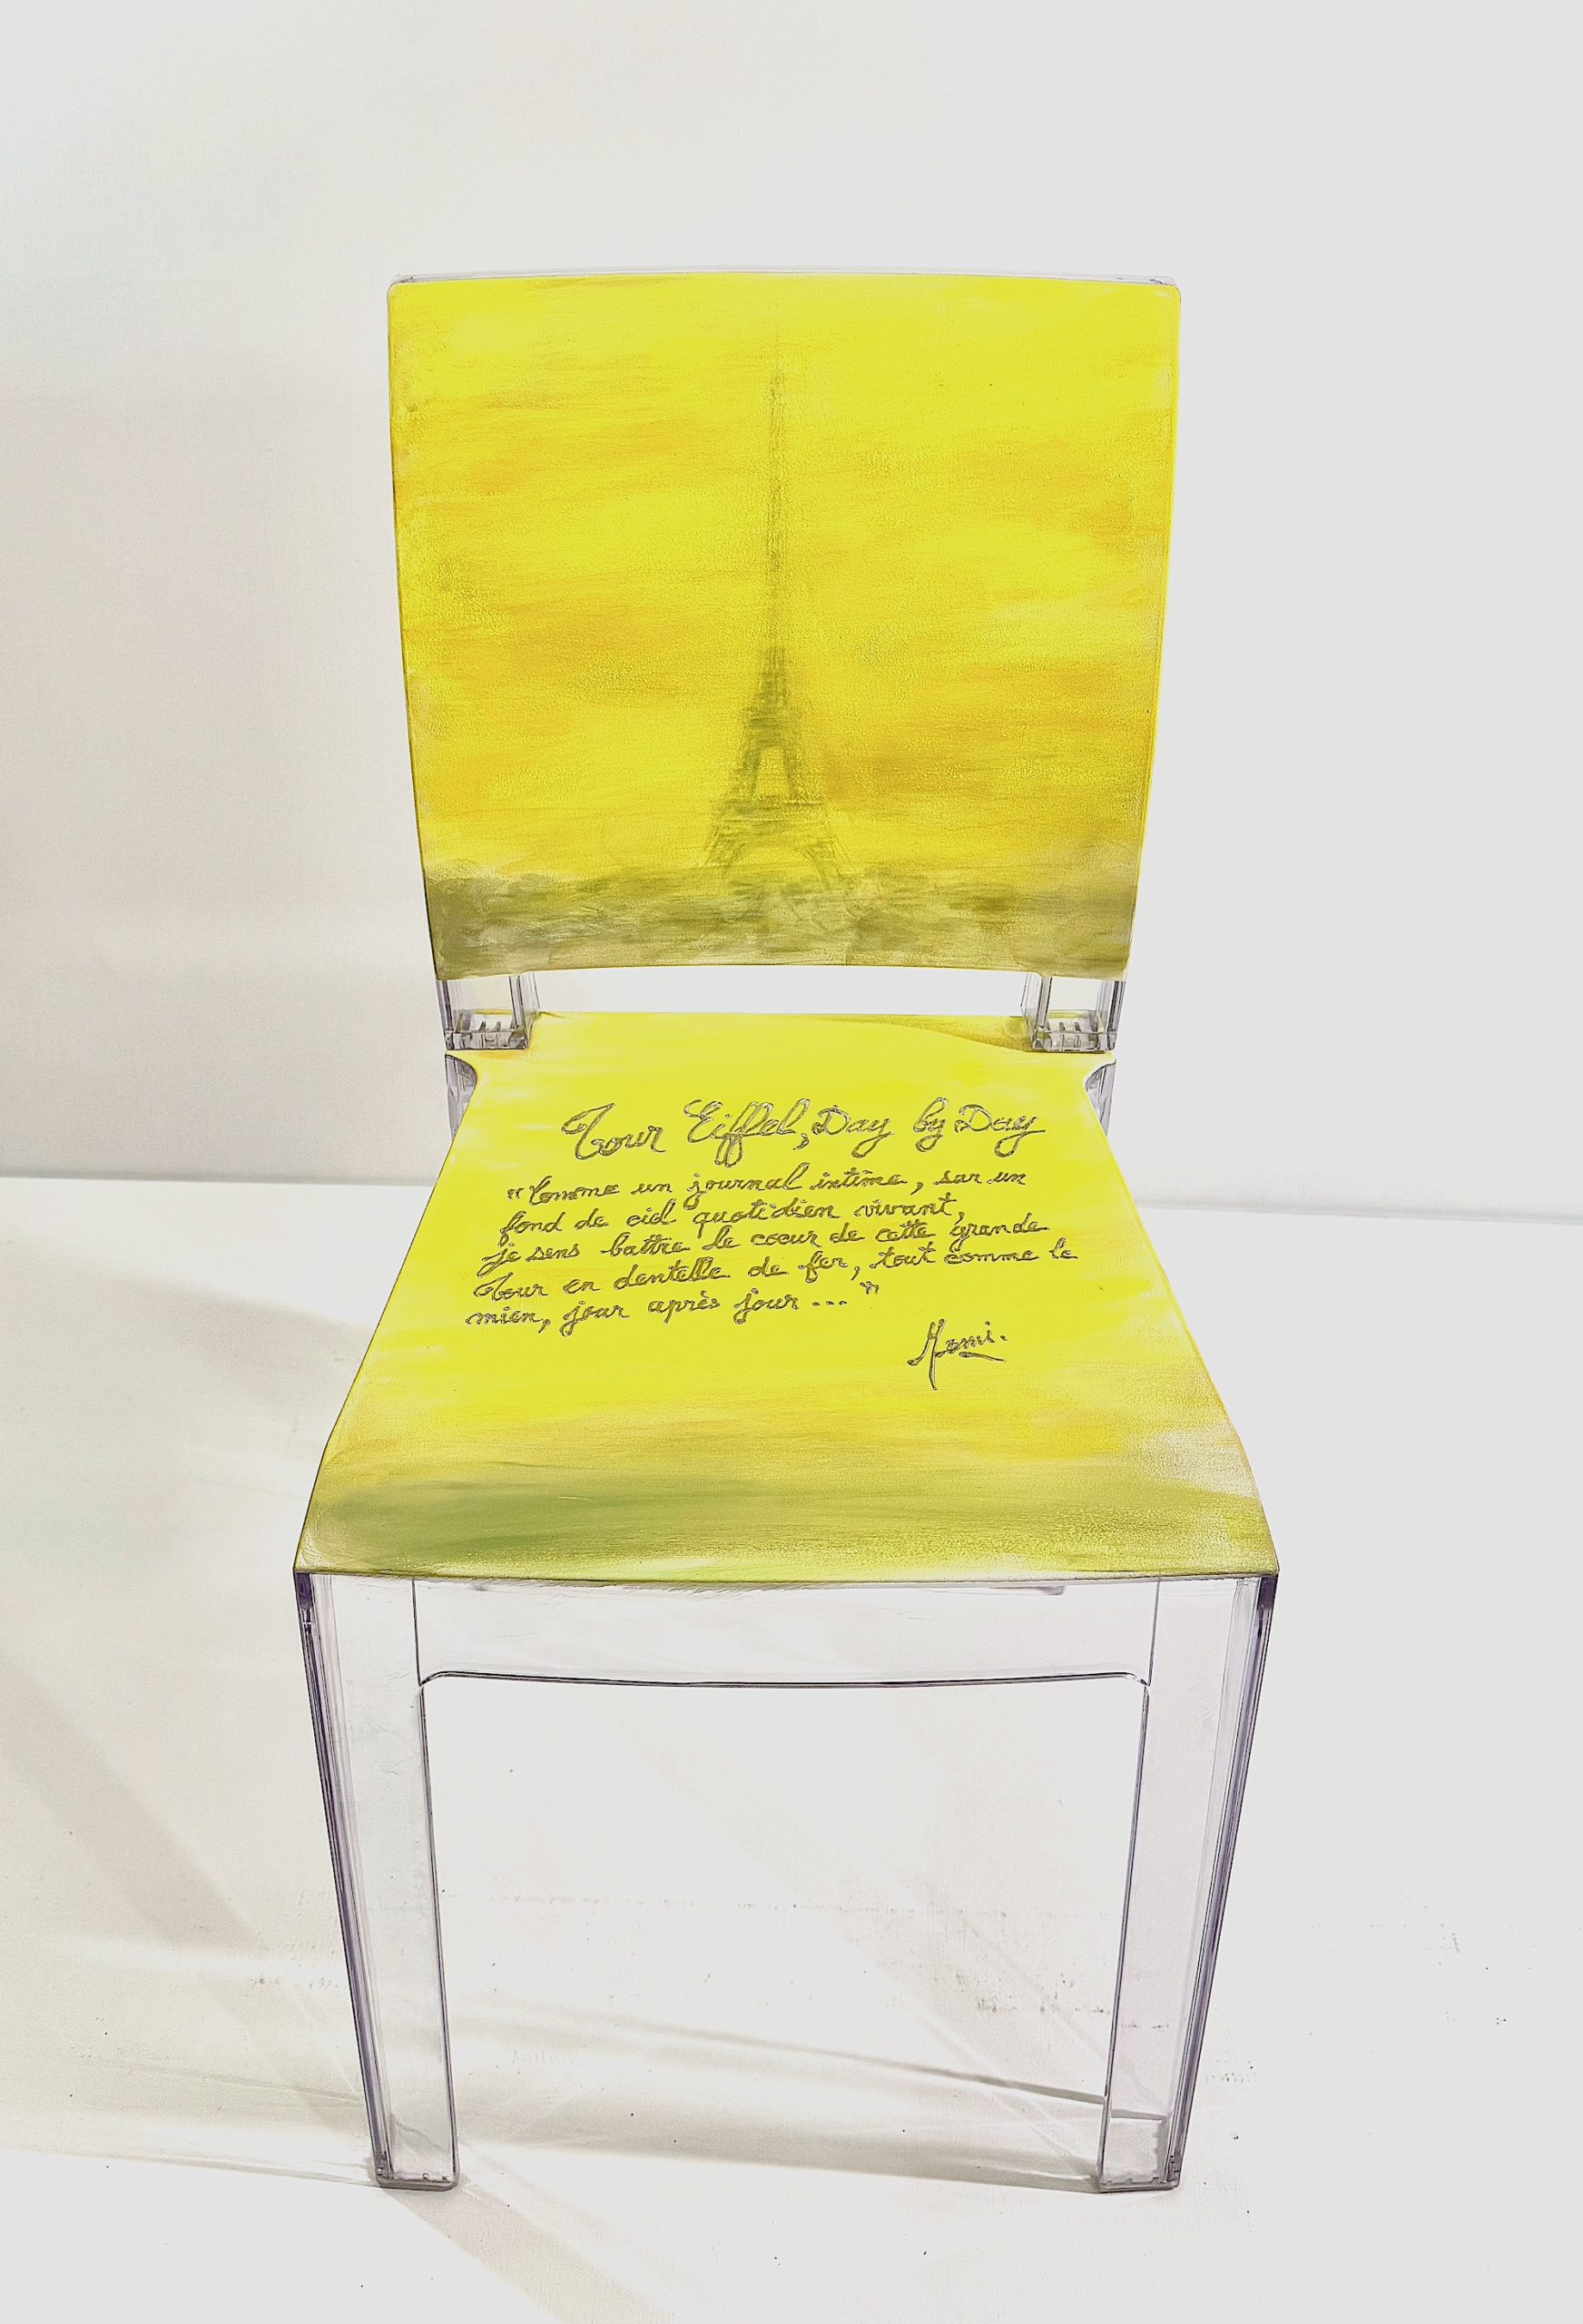 Tour Eiffel, Day by Day
"Comme un journal intime, sur un
fond de ciel quotidien vivant,
je sens battre le coeur de cette grande
Tour en dentelle de fer, tout comme le
mien, jour après jour ... "